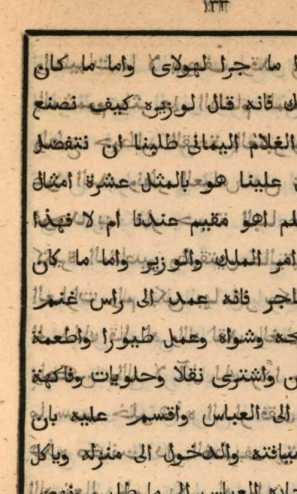 ١٣٣
ما جرا لهولاى واما ما كان
فانه قال لوزيره كيف نصنع
الغلام اليمانى طلبنا ان نتفضل
علينا هو بالمثل عشرة امثال
اهو مقيم عندنا ام لا فهذا
امر الملك والوزير واما ما كان
فانه عمد الى راس غنم
وشواه وعمل طيورا واطعمة
واشترى نقلا وحلويات وفاكهة
الى العباس واقسم عليه بان
ضيافته والدخول الى منزله وياكل